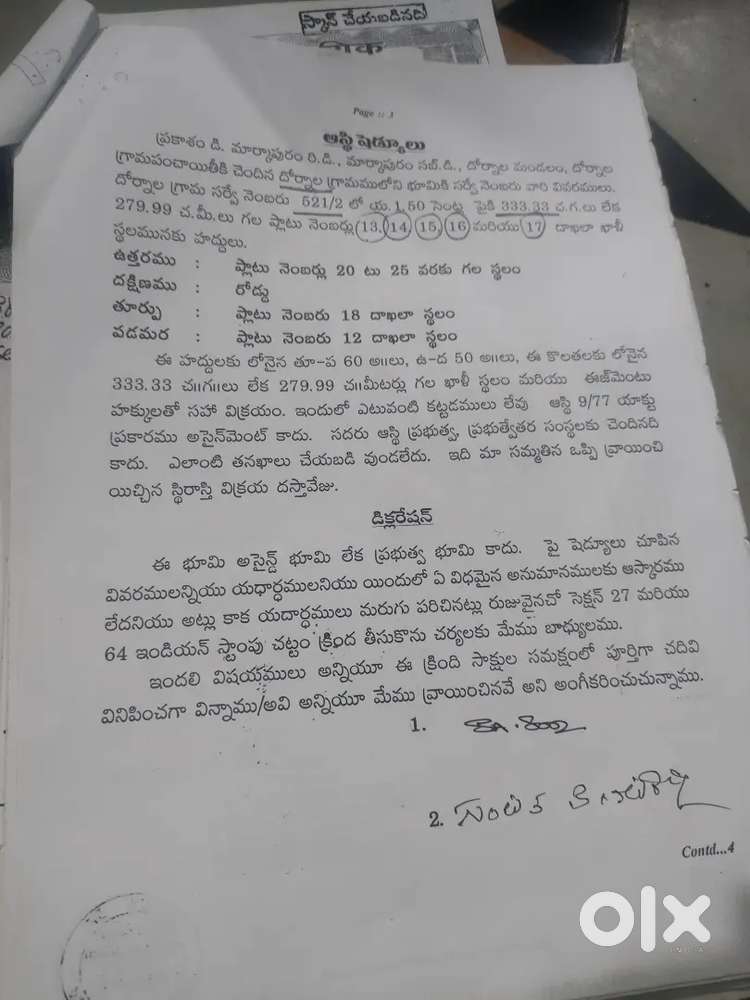 స్కాన్ చేయబడినది
Page :: 3
ఆస్థి షెడ్యూలు
ప్రకాశం డి. మార్కాపురం రి.డి., మార్కాపురం సబ్.డి., దోర్నాల మండలం, దోర్నాల
గ్రామపంచాయితీకి చెందిన దోర్నాల గ్రామములోని భూమికి సర్వే నెంబరు వారి వివరములు.
దోర్నాల గ్రామ సర్వే నెంబరు 521/2 లో య.1.50 సెంట్ల పైకి 333.33 చ.గ.లు లేక
279.99 చ.మీ.లు గల ప్లాటు నెంబర్లు 13, 14, 15, 16 మరియు 17 దాఖలా ఖాళీ
స్థలమునకు హద్దులు.
ఉత్తరము : ప్లాటు నెంబర్లు 20 టు 25 వరకు గల స్థలం
దక్షిణము : రోడ్డు
తూర్పు : ప్లాటు నెంబరు 18 దాఖలా స్థలం
వడమర : ప్లాటు నెంబరు 12 దాఖలా స్థలం
ఈ హద్దులకు లోనైన తూ-ప 60 అ॥లు, ఉ-ద 50 అ॥లు, ఈ కొలతలకు లోనైన
333.33 చ॥గ॥లు లేక 279.99 చ॥మీటర్లు గల ఖాళీ స్థలం మరియు ఈజ్‌మెంటు
హక్కులతో సహా విక్రయం. ఇందులో ఎటువంటి కట్టడములు లేవు ఆస్థి 9/77 యాక్టు
ప్రకారము అసైన్‌మెంట్ కాదు. సదరు ఆస్థి ప్రభుత్వ, ప్రభుత్వేతర సంస్థలకు చెందినది
కాదు. ఎలాంటి తనఖాలు చేయబడి వుండలేదు. ఇది మా సమ్మతిన ఒప్పి వ్రాయించి
యిచ్చిన స్థిరాస్తి విక్రయ దస్తావేజు.
డిక్లరేషన్
ఈ భూమి అసైన్డ్ భూమి లేక ప్రభుత్వ భూమి కాదు. పై షెడ్యూలు చూపిన
వివరములన్నియు యధార్ధములనియు యిందులో ఏ విధమైన అనుమానములకు ఆస్కారము
లేదనియు అట్లు కాక యదార్ధములు మరుగు పరిచినట్లు రుజువైనచో సెక్షన్ 27 మరియు
64 ఇండియన్ స్టాంపు చట్టం క్రింద తీసుకొను చర్యలకు మేము బాధ్యులము.
ఇందలి విషయములు అన్నియూ ఈ క్రింది సాక్షుల సమక్షంలో పూర్తిగా చదివి
వినిపించగా విన్నాము/అవి అన్నియూ మేము వ్రాయించినవే అని అంగీకరించుచున్నాము.
1.
2.
Contd...4
olx
INDIA